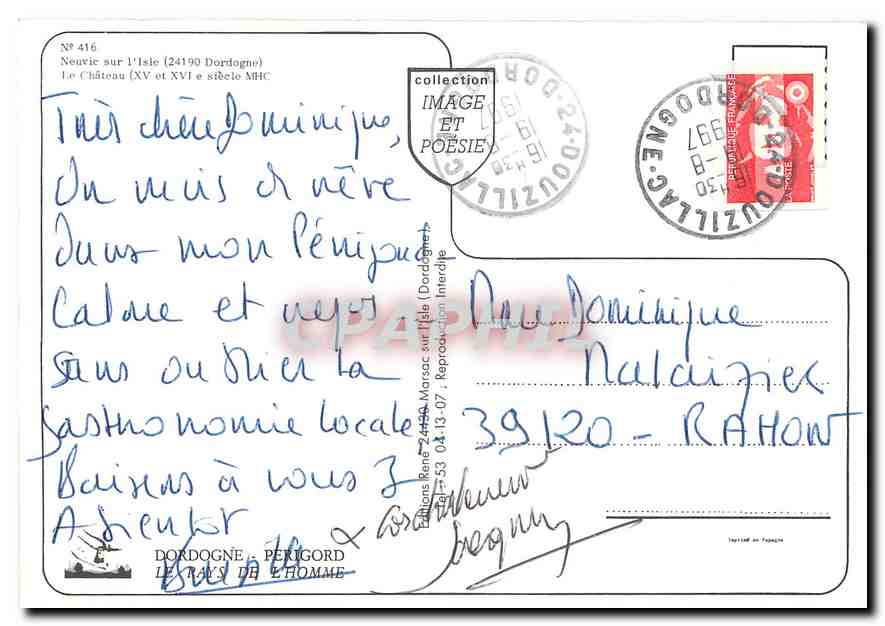 Nº 416.
Neuvic sur l'Isle (24190 Dordogne)
Le Château (XV et XVI e siècle MHC
collection
IMAGE
ET
POÉSIE
24-DOUZILLAC
DORDOGNE
16 H30
19-8
1997
24-DOUZILLAC
DORDOGNE
16 H30
19-8
1997
RÉPUBLIQUE FRANÇAISE
LA POSTE
Très chère Dominique,
Un mois de rêve
Dans mon Périgord
Calme et repos.
Sans oublier la
gastronomie locale
Baisers à vous 3
A bientôt
&
Mme Dominique
Malaizier
39120 - RAHON
Editions René 24430 Marsac sur l'Isle (Dordogne)
Tel. 53 04-13-07 ; Reproduction Interdite
CPAPHIL
DORDOGNE - PÉRIGORD
LE PAYS DE L'HOMME
Imprimé en Espagne